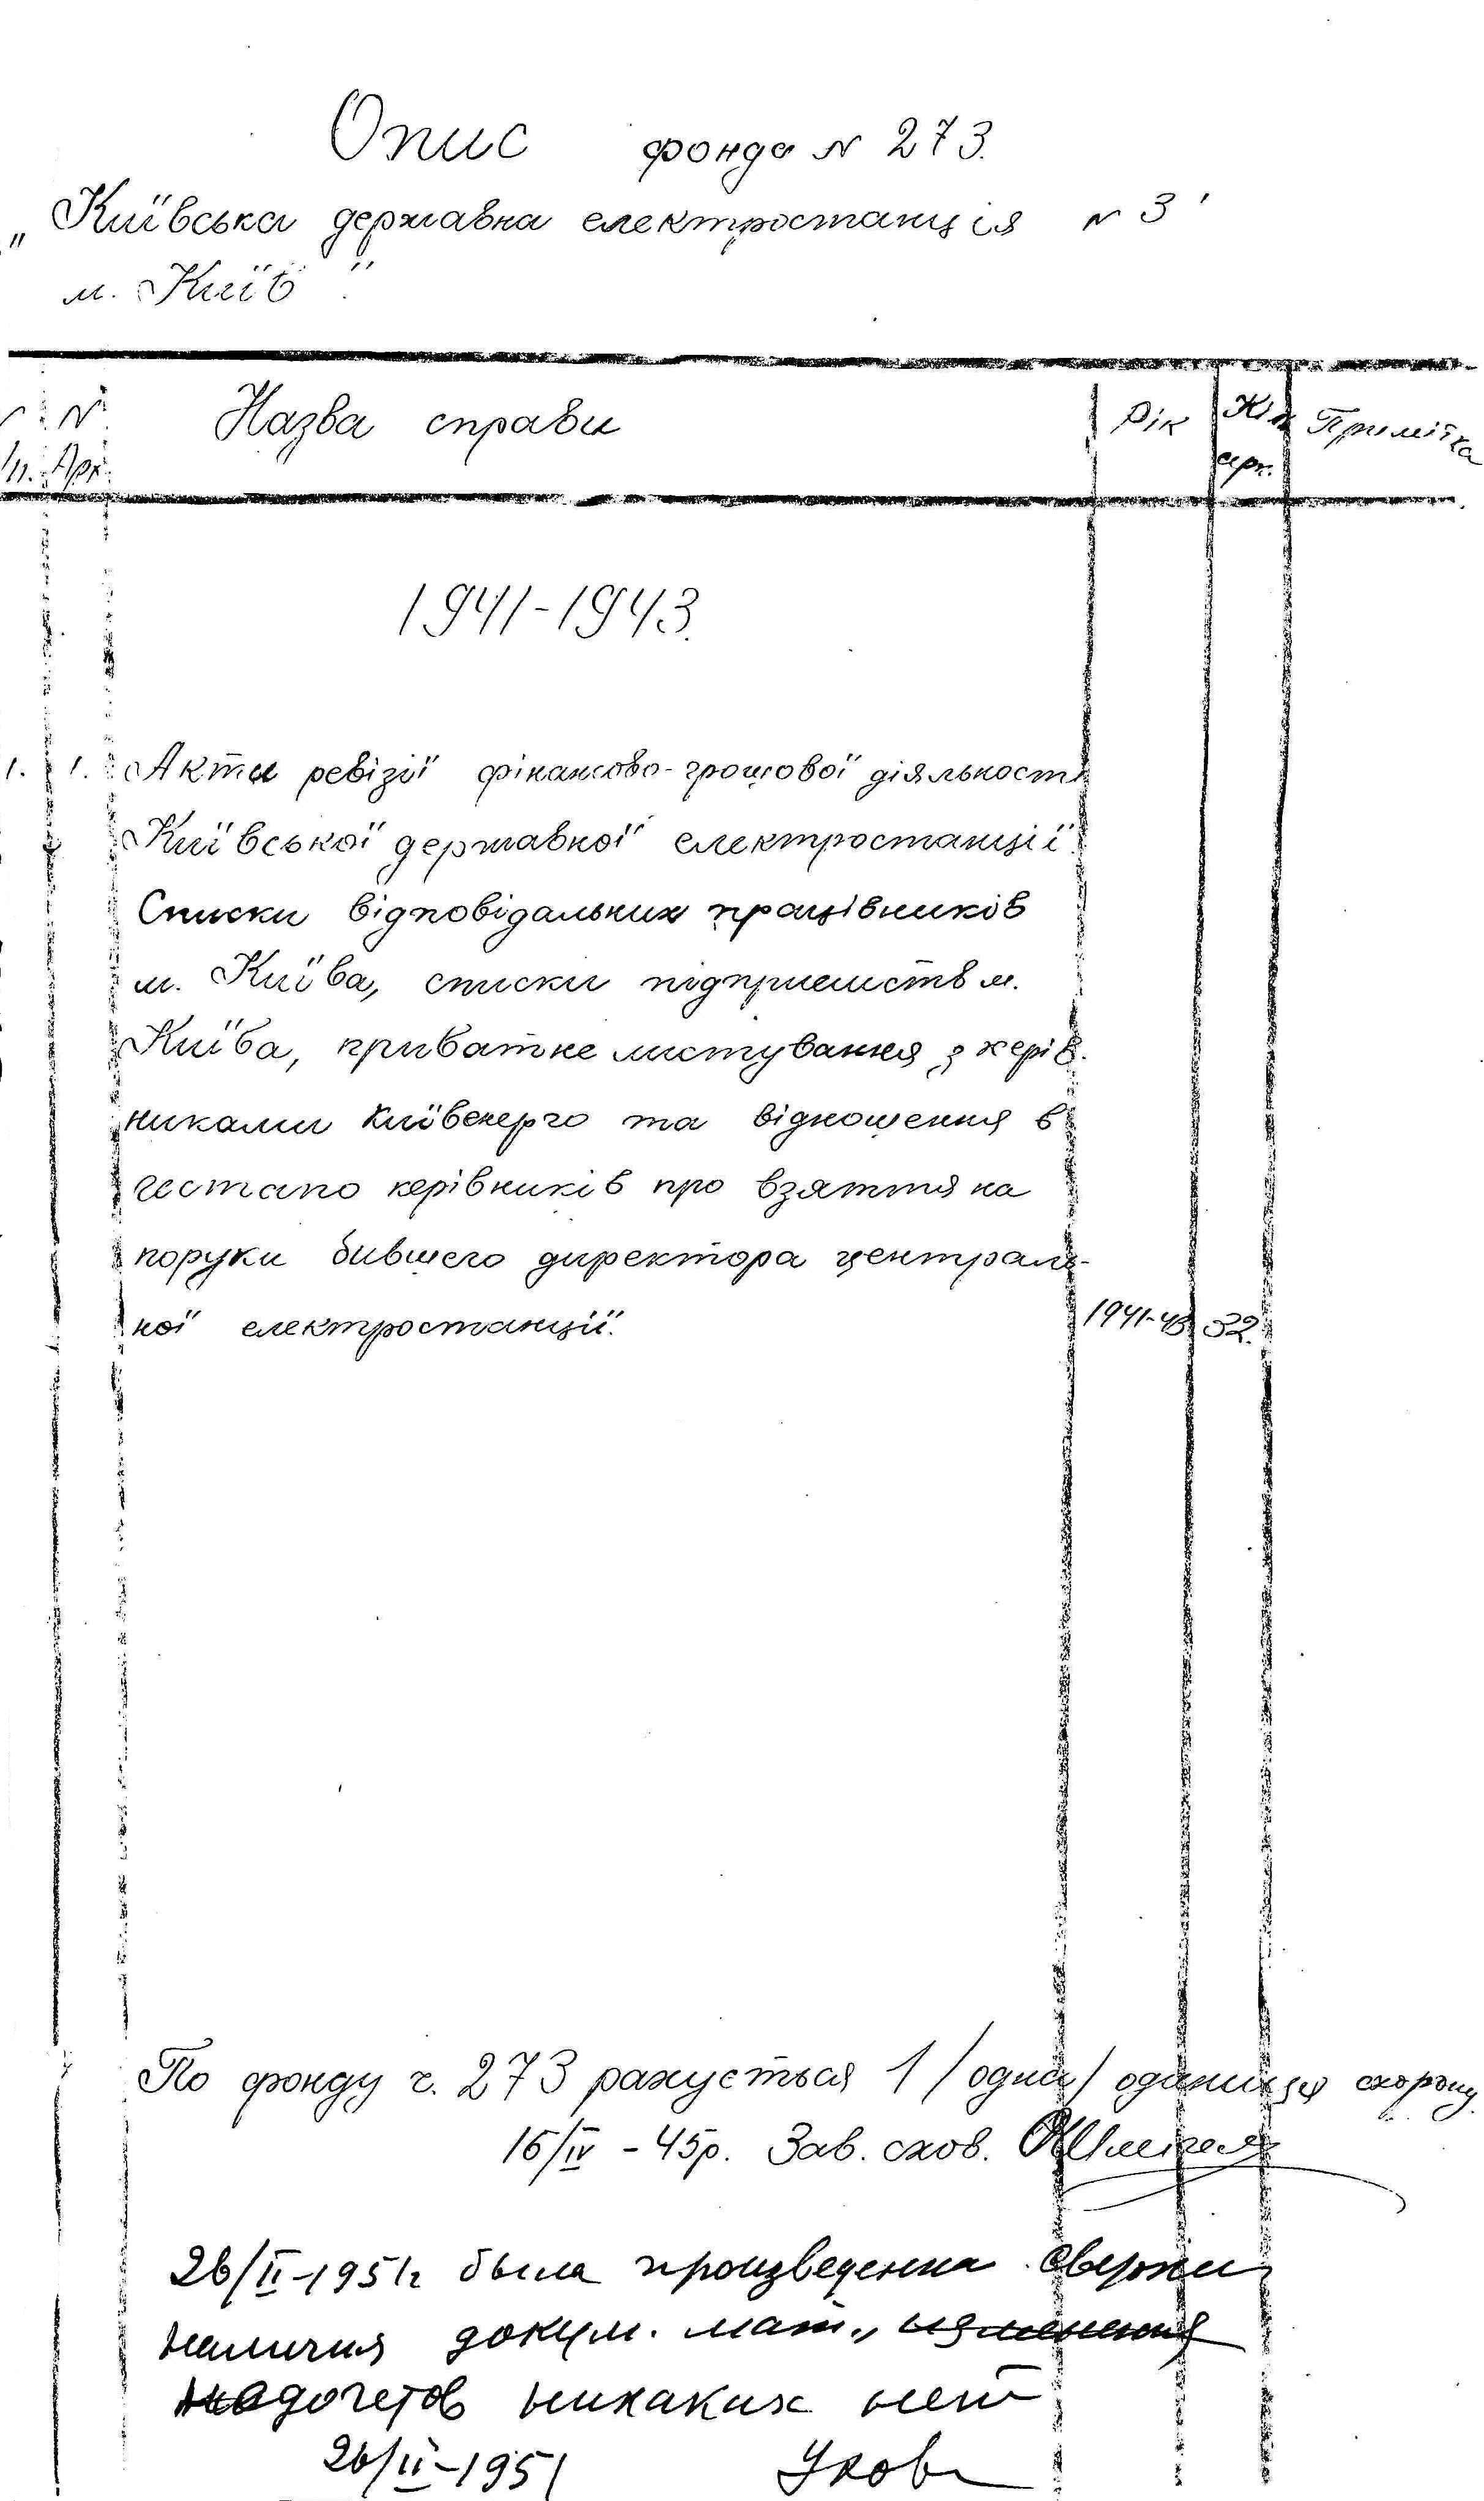 Опис фонда № 273.
„Київська державна електростанція № 3
м. Київ".
№ № Назва справи Рік Кіл. Примітка
/п. Арк. арк.
1941-1943.
1. 1. Акти ревізії фінансово-грошової діяльності
Київської державної електростанції.
Списки відповідальних працівників
м. Київа, списки підприємств м.
Київа, приватне листування з керів-
никами Київенерго та відношення в
гестапо керівників про взяття на
поруки бившего директора централь-
ної електростанції. 1941-43 32.
По фонду ч. 273 рахується 1 /одна/ одиниця схорону
16/IV - 45р. Зав. схов.
26/II-1951г была произведенна сверки
наличия докум. мат., изменения
недочетов никаких нет
26/II-1951